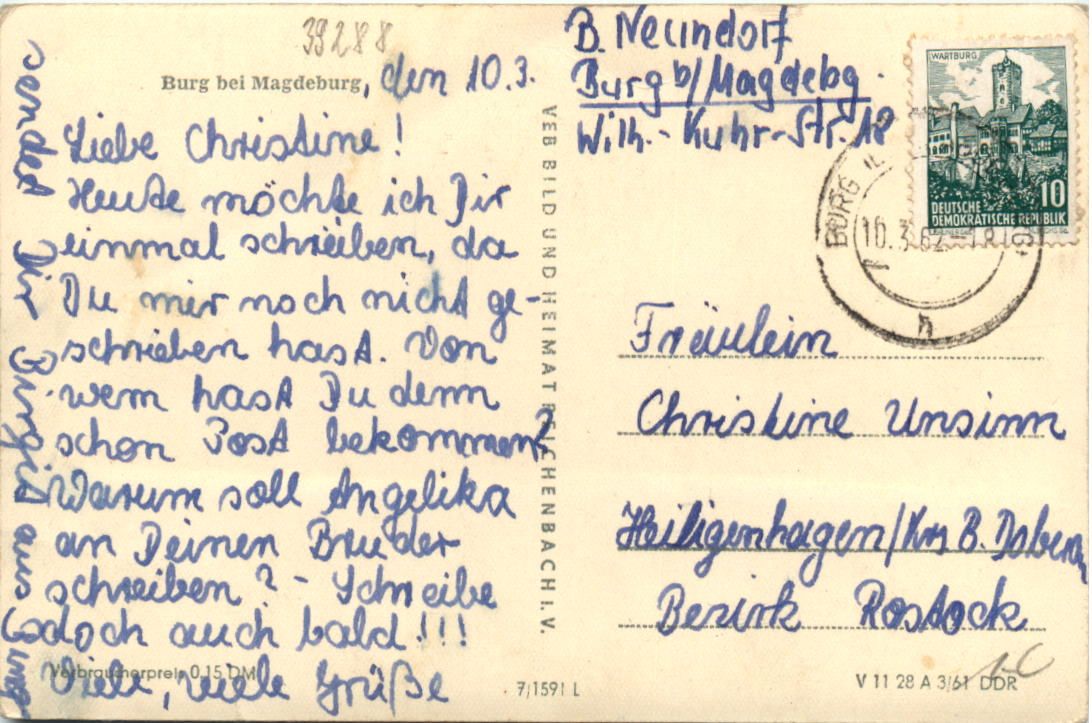 39288
Burg bei Magdeburg, den 10.3.
Liebe Christine!
Heute möchte ich Dir
einmal schreiben, da
Du mir noch nicht ge-
schrieben hast. Von
wem hast Du denn
schon Post bekommen?
Warum soll Angelika
an Deinen Bruder
schreiben? - Schreibe
doch auch bald!!!
Viele, viele Grüße
sendet Dir Birgit aus
Verbraucherpreis 0,15 DM
VEB BILD UND HEIMAT REICHENBACH I. V.
7/1591 L
B. Neundorf
Burg b/Magdebg.
Wilh.- Kuhr-Str. 18
WARTBURG
10
DEUTSCHE
DEMOKRATISCHE REPUBLIK
BURG
10.3.62-18
h
Fräulein
Christine Unsinn
Heiligenhagen/Krs B. Doberan
Bezirk Rostock
V 11 28 A 3/61 DDR